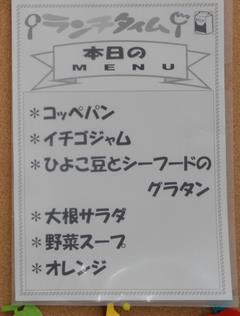 ランチタイム
本日の
MENU
＊コッペパン
＊イチゴジャム
＊ひよこ豆とシーフードの
グラタン
＊大根サラダ
＊野菜スープ
＊オレンジ